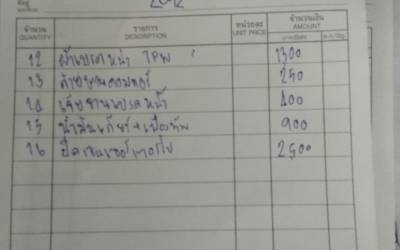 ที่อยู่
ADDRESS
จำนวน รายการ หน่วยละ จำนวนเงิน
QUANTITY DESCRIPTION UNIT PRICE AMOUNT
12 ผ้าเบรคหน้า TPW 1300
13 250
14 เจียจานเบรคหน้า 400
15 น้ำมันเกียร์+เฟืองท้าย 900
16 2500